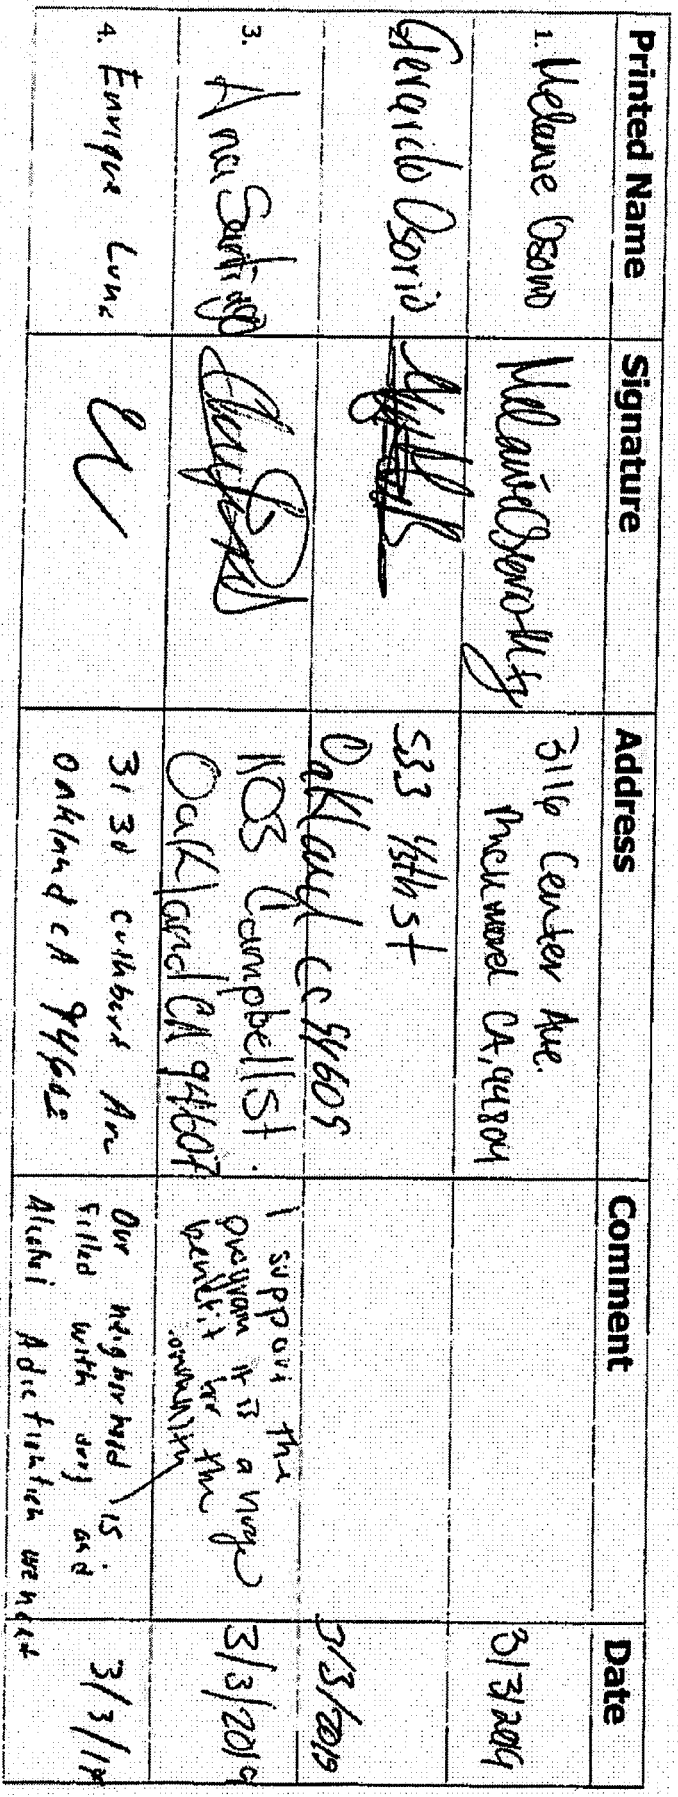 Printed Name Signature Address Comment Date
1. Melanie Osorio
3116 Center Ave.
Richmond CA, 94804
3/3/2019
Gerardo Osorio
533 45th st
Oakland ca 94609
3/3/2019
3. Ana Santiago
1105 Campbell St.
Oakland CA 94607
I support the
program it is a huge
benefit for the
community
3/3/2019
4. Enrique Luna
3130 cuthbert Av
Oakland CA 94602
Our neighborhood is
filled with drug and
Alcohol Adictiontion we need
3/3/19